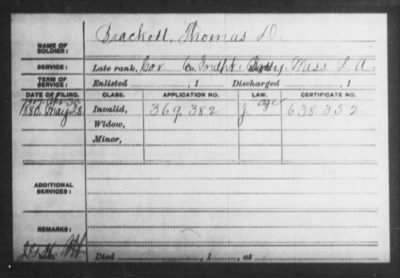 NAME OF SOLDIER: Brackett, Thomas D.
SERVICE: Late rank, Cor Co. Indpt. Batty. Mass L A.
TERM OF SERVICE: Enlisted , 1 Discharged , 1
DATE OF FILING. CLASS. APPLICATION NO. LAW. CERTIFICATE NO.
1880, May 28 Invalid, 369.382 J age 638352
Widow,
Minor,
ADDITIONAL SERVICES:
REMARKS:
Died , 1 , at